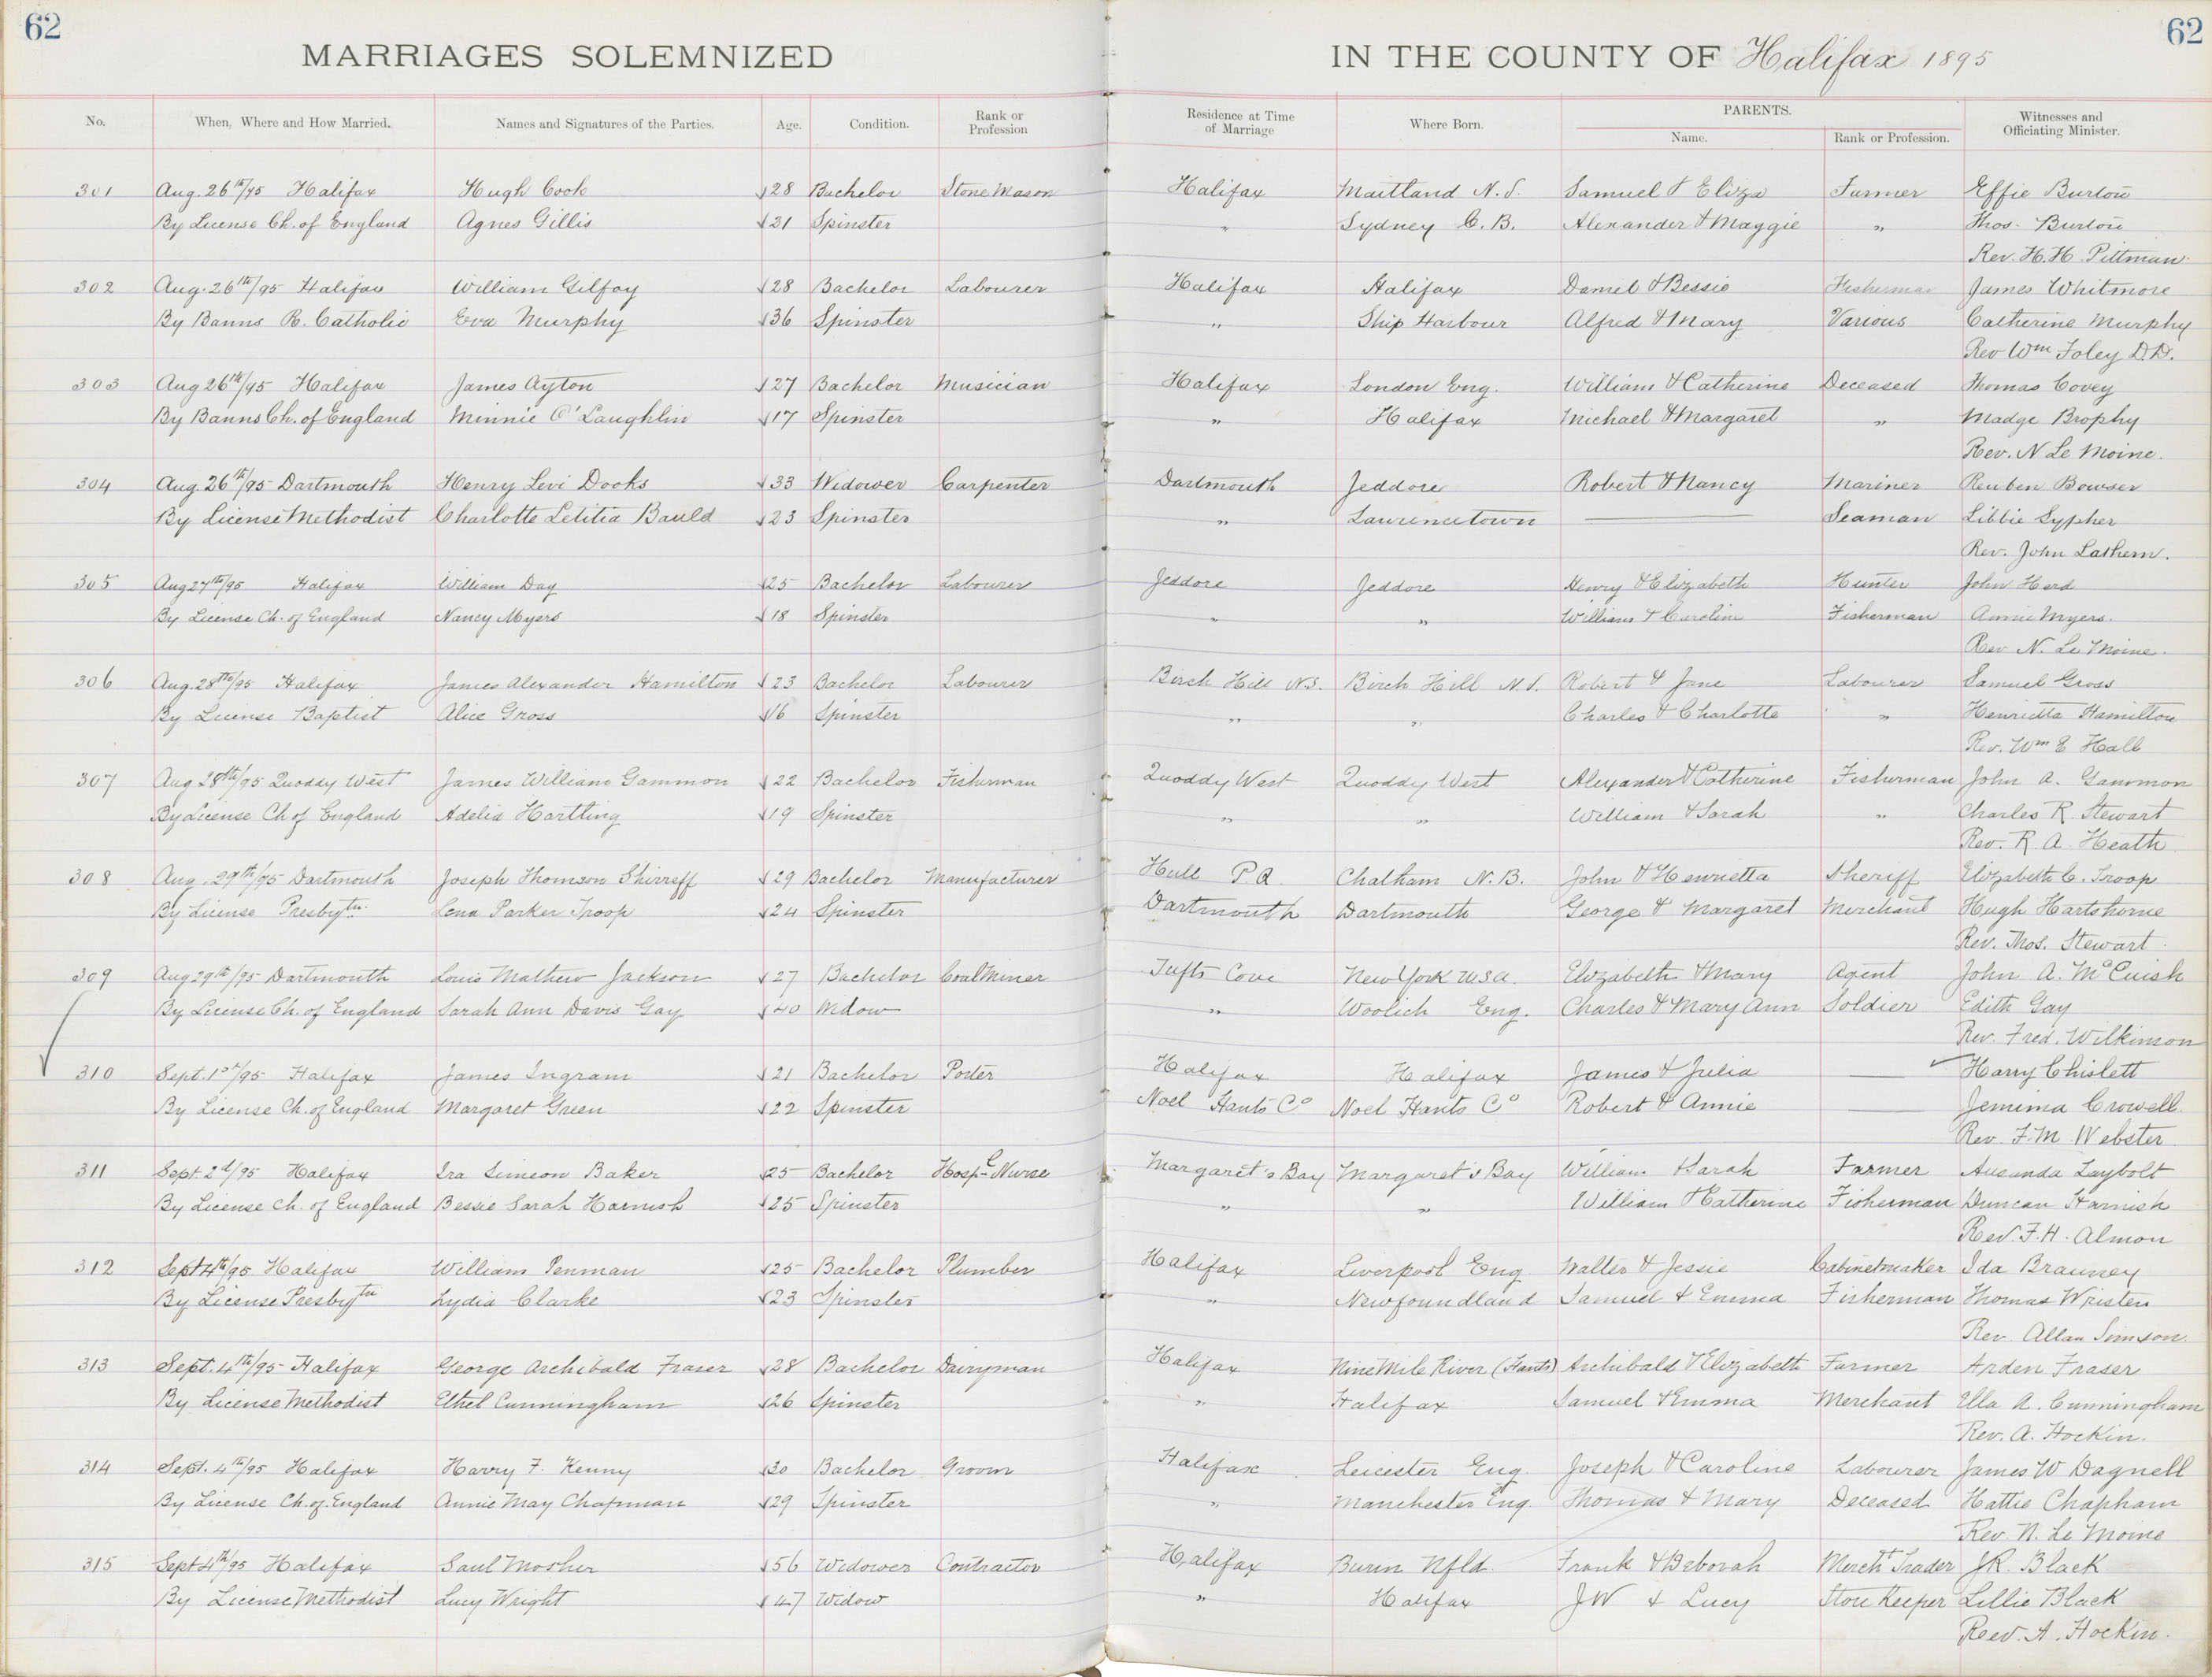 62
MARRIAGES SOLEMNIZED IN THE COUNTY OF Halifax 1895
62
No. When, Where and How Married. Names and Signatures of the Parties. Age. Condition. Rank or Profession Residence at Time of Marriage Where Born. PARENTS. Name. Rank or Profession. Witnesses and Officiating Minister.
301 Aug. 26th/95 Halifax Hugh Cook 28 Bachelor Stone Mason Halifax Maitland N.S. Samuel & Eliza Farmer Effie Burton
By License Ch. of England Agnes Gillis 31 Spinster " Sydney C.B. Alexander & Maggie " Thos. Burton
Rev. H.H. Pittman
302 Aug. 26th/95 Halifax William Gilfoy 28 Bachelor Labourer Halifax Halifax Daniel & Bessie Fisherman James Whitmore
By Banns R. Catholic Eva Murphy 36 Spinster " Ship Harbour Alfred & Mary Various Catherine Murphy
Rev Wm Foley D.D.
303 Aug 26th/95 Halifax James Ayton 27 Bachelor Musician Halifax London Eng. William & Catherine Deceased Thomas Covey
By Banns Ch. of England Minnie O'Laughlin 17 Spinster " Halifax Michael & Margaret " Madge Brophy
Rev. N Le Moine.
304 Aug 26th/95 Dartmouth Henry Levi Dooks 33 Widower Carpenter Dartmouth Jeddore Robert & Nancy Mariner Reuben Bowser
By License Methodist Charlotte Letitia Bauld 23 Spinster " Lawrencetown — Seaman Libbie Sypher
Rev. John Lathern.
305 Aug 27th/95 Halifax William Day 25 Bachelor Labourer Jeddore Jeddore Henry & Elizabeth Hunter John Herd
By License Ch. of England Nancy Myers 18 Spinster " " William & Caroline Fisherman Annie Myers.
Rev N. Le Moine.
306 Aug. 28th/95 Halifax James Alexander Hamilton 23 Bachelor Labourer Birch Hill N.S. Birch Hill N.S. Robert & Jane Labourer Samuel Gross
By License Baptist Alice Gross 16 Spinster " " Charles & Charlotte " Henrietta Hamilton
Rev. Wm E Hall
307 Aug 28th/95 Quoddy West James William Gammon 22 Bachelor Fisherman Quoddy West Quoddy West Alexander & Catherine Fisherman John A. Gammon
By License Ch of England Adelia Hartling 19 Spinster " " William & Sarah " Charles R. Stewart
Rev. R. A. Heath
308 Aug. 29th/95 Dartmouth Joseph Thomson Shirreff 29 Bachelor Manufacturer Hull P Q Chatham N.B. John & Henrietta Sheriff Elizabeth C. Troop
By License Presbytn. Lena Parker Troop 24 Spinster Dartmouth Dartmouth George & Margaret Merchant Hugh Hartshorne
Rev. Thos. Stewart.
309 Aug 29th/95 Dartmouth Louis Mathew Jackson 27 Bachelor Coal Miner Tufts Cove New York U.S.A. Elizabeth & Mary Agent John A. McCuish
By License Ch. of England Sarah Ann Davis Gay 40 Widow " Woolich Eng. Charles & Mary Ann Soldier Edith Gay
Rev. Fred. Wilkinson
310 Sept. 1st/95 Halifax James Ingram 21 Bachelor Porter Halifax Halifax James & Julia — Harry Chislett
By License Ch. of England Margaret Green 22 Spinster Noel Hants Co Noel Hants Co Robert & Annie — Jemima Crowell.
Rev F.M. Webster
311 Sept. 2d/95 Halifax Ira Simeon Baker 25 Bachelor Hospl Nurse Margaret's Bay Margaret's Bay William & Sarah Farmer Ausanda Laybolt
By License Ch. of England Bessie Sarah Harnish 25 Spinster " " William & Catherine Fisherman Duncan Harnish
Rev. F.H. Almon
312 Sept 4th/95 Halifax William Penman 25 Bachelor Plumber Halifax Liverpool Eng. Walter & Jessie Cabinetmaker Ida Brauney
By License Presbytn Lydia Clarke 23 Spinster " Newfoundland Samuel & Emma Fisherman Thomas Wristen
Rev. Allan Simson
313 Sept. 4th/95 Halifax George Archibald Fraser 28 Bachelor Dairyman Halifax Nine Mile River (Hants) Archibald & Elizabeth Farmer Arden Fraser
By License Methodist Ethel Cunningham 26 Spinster " Halifax Samuel & Emma Merchant Ella A. Cunningham
Rev. A. Hockin.
314 Sept. 4th/95 Halifax Harry F. Kenny 30 Bachelor Groom Halifax Leicester Eng. Joseph & Caroline Labourer James W Dagnell
By License Ch. of England Annie May Chapman 29 Spinster " Manchester Eng. Thomas & Mary Deceased Hattie Chapham
Rev. N. Le Moine
315 Sept 4th/95 Halifax Saul Mosher 56 Widower Contractor Halifax Burin Nfld. Frank & Deborah Mercht Trader J.R. Black
By License Methodist Lucy Wright 47 Widow " Halifax J W & Lucy Store Keeper Lillie Black
Rev. A. Hockin.